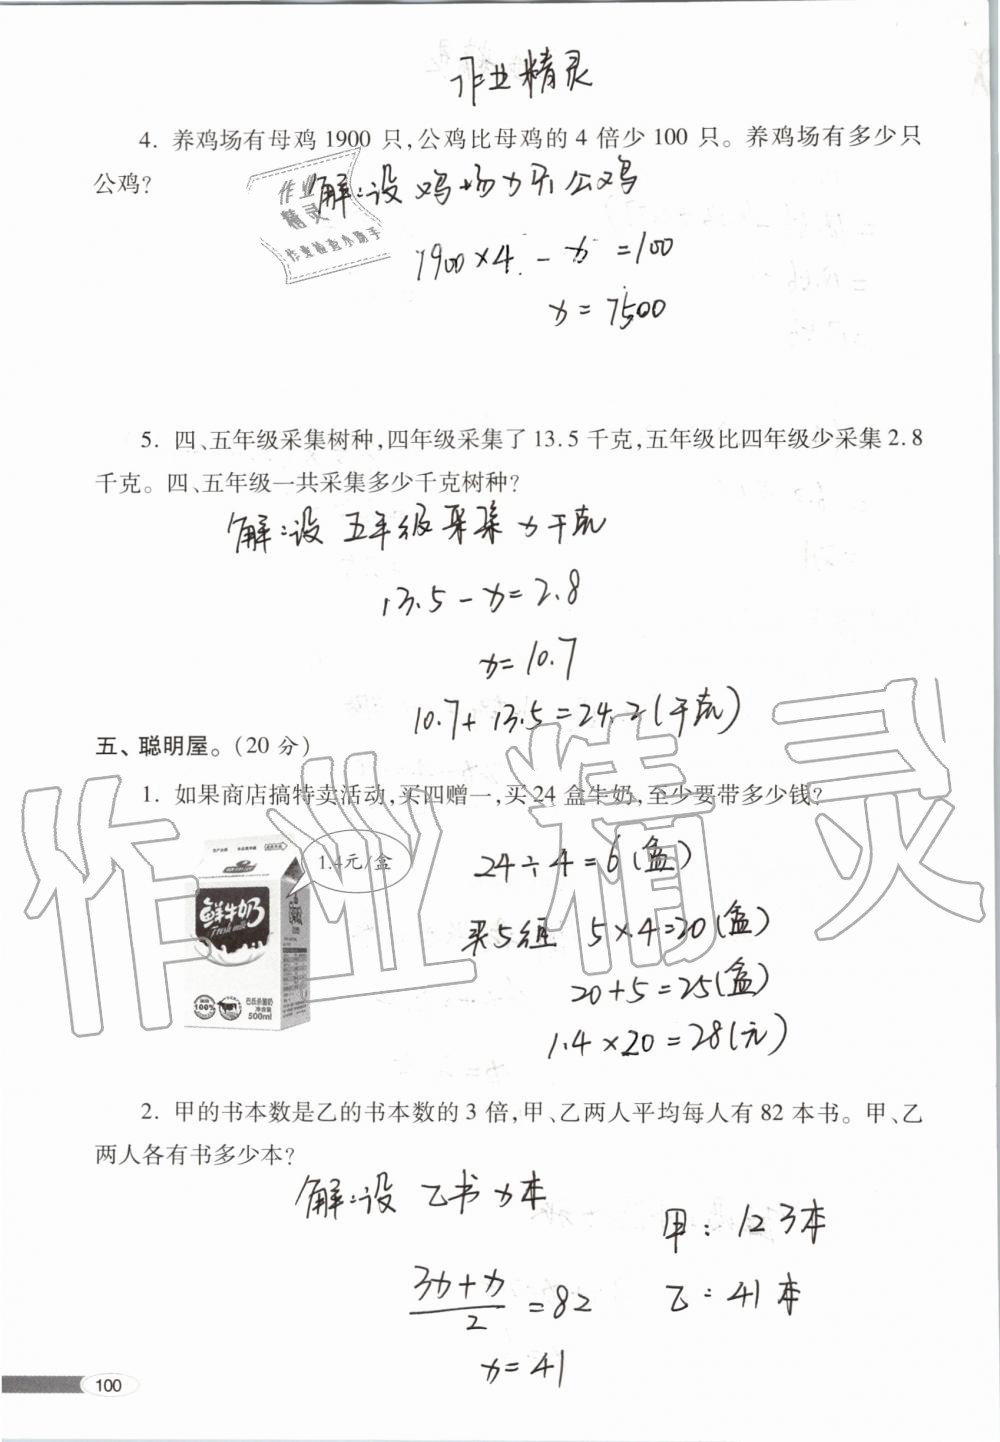 作业精灵
4. 养鸡场有母鸡1900只,公鸡比母鸡的4倍少100只。养鸡场有多少只
公鸡?
解:设鸡场x只公鸡
作业
精灵
作业检查小助手
1900×4 - x =100
x = 7500
5. 四、五年级采集树种,四年级采集了13.5千克,五年级比四年级少采集2.8
千克。四、五年级一共采集多少千克树种?
解:设五年级采集x千克
13.5 - x = 2.8
x = 10.7
10.7 + 13.5 = 24.2(千克)
五、聪明屋。(20分)
1. 如果商店搞特卖活动,买四赠一,买24盒牛奶,至少要带多少钱?
1.4元/盒
鲜牛奶
Fresh milk
100%
500ml
24÷4=6(盒)
买5组 5×4=20(盒)
20+5=25(盒)
1.4×20=28(元)
作业精灵
2. 甲的书本数是乙的书本数的3倍,甲、乙两人平均每人有82本书。甲、乙
两人各有书多少本?
解:设乙书x本
甲:123本
3x+x
/2 = 82
乙:41本
x=41
100